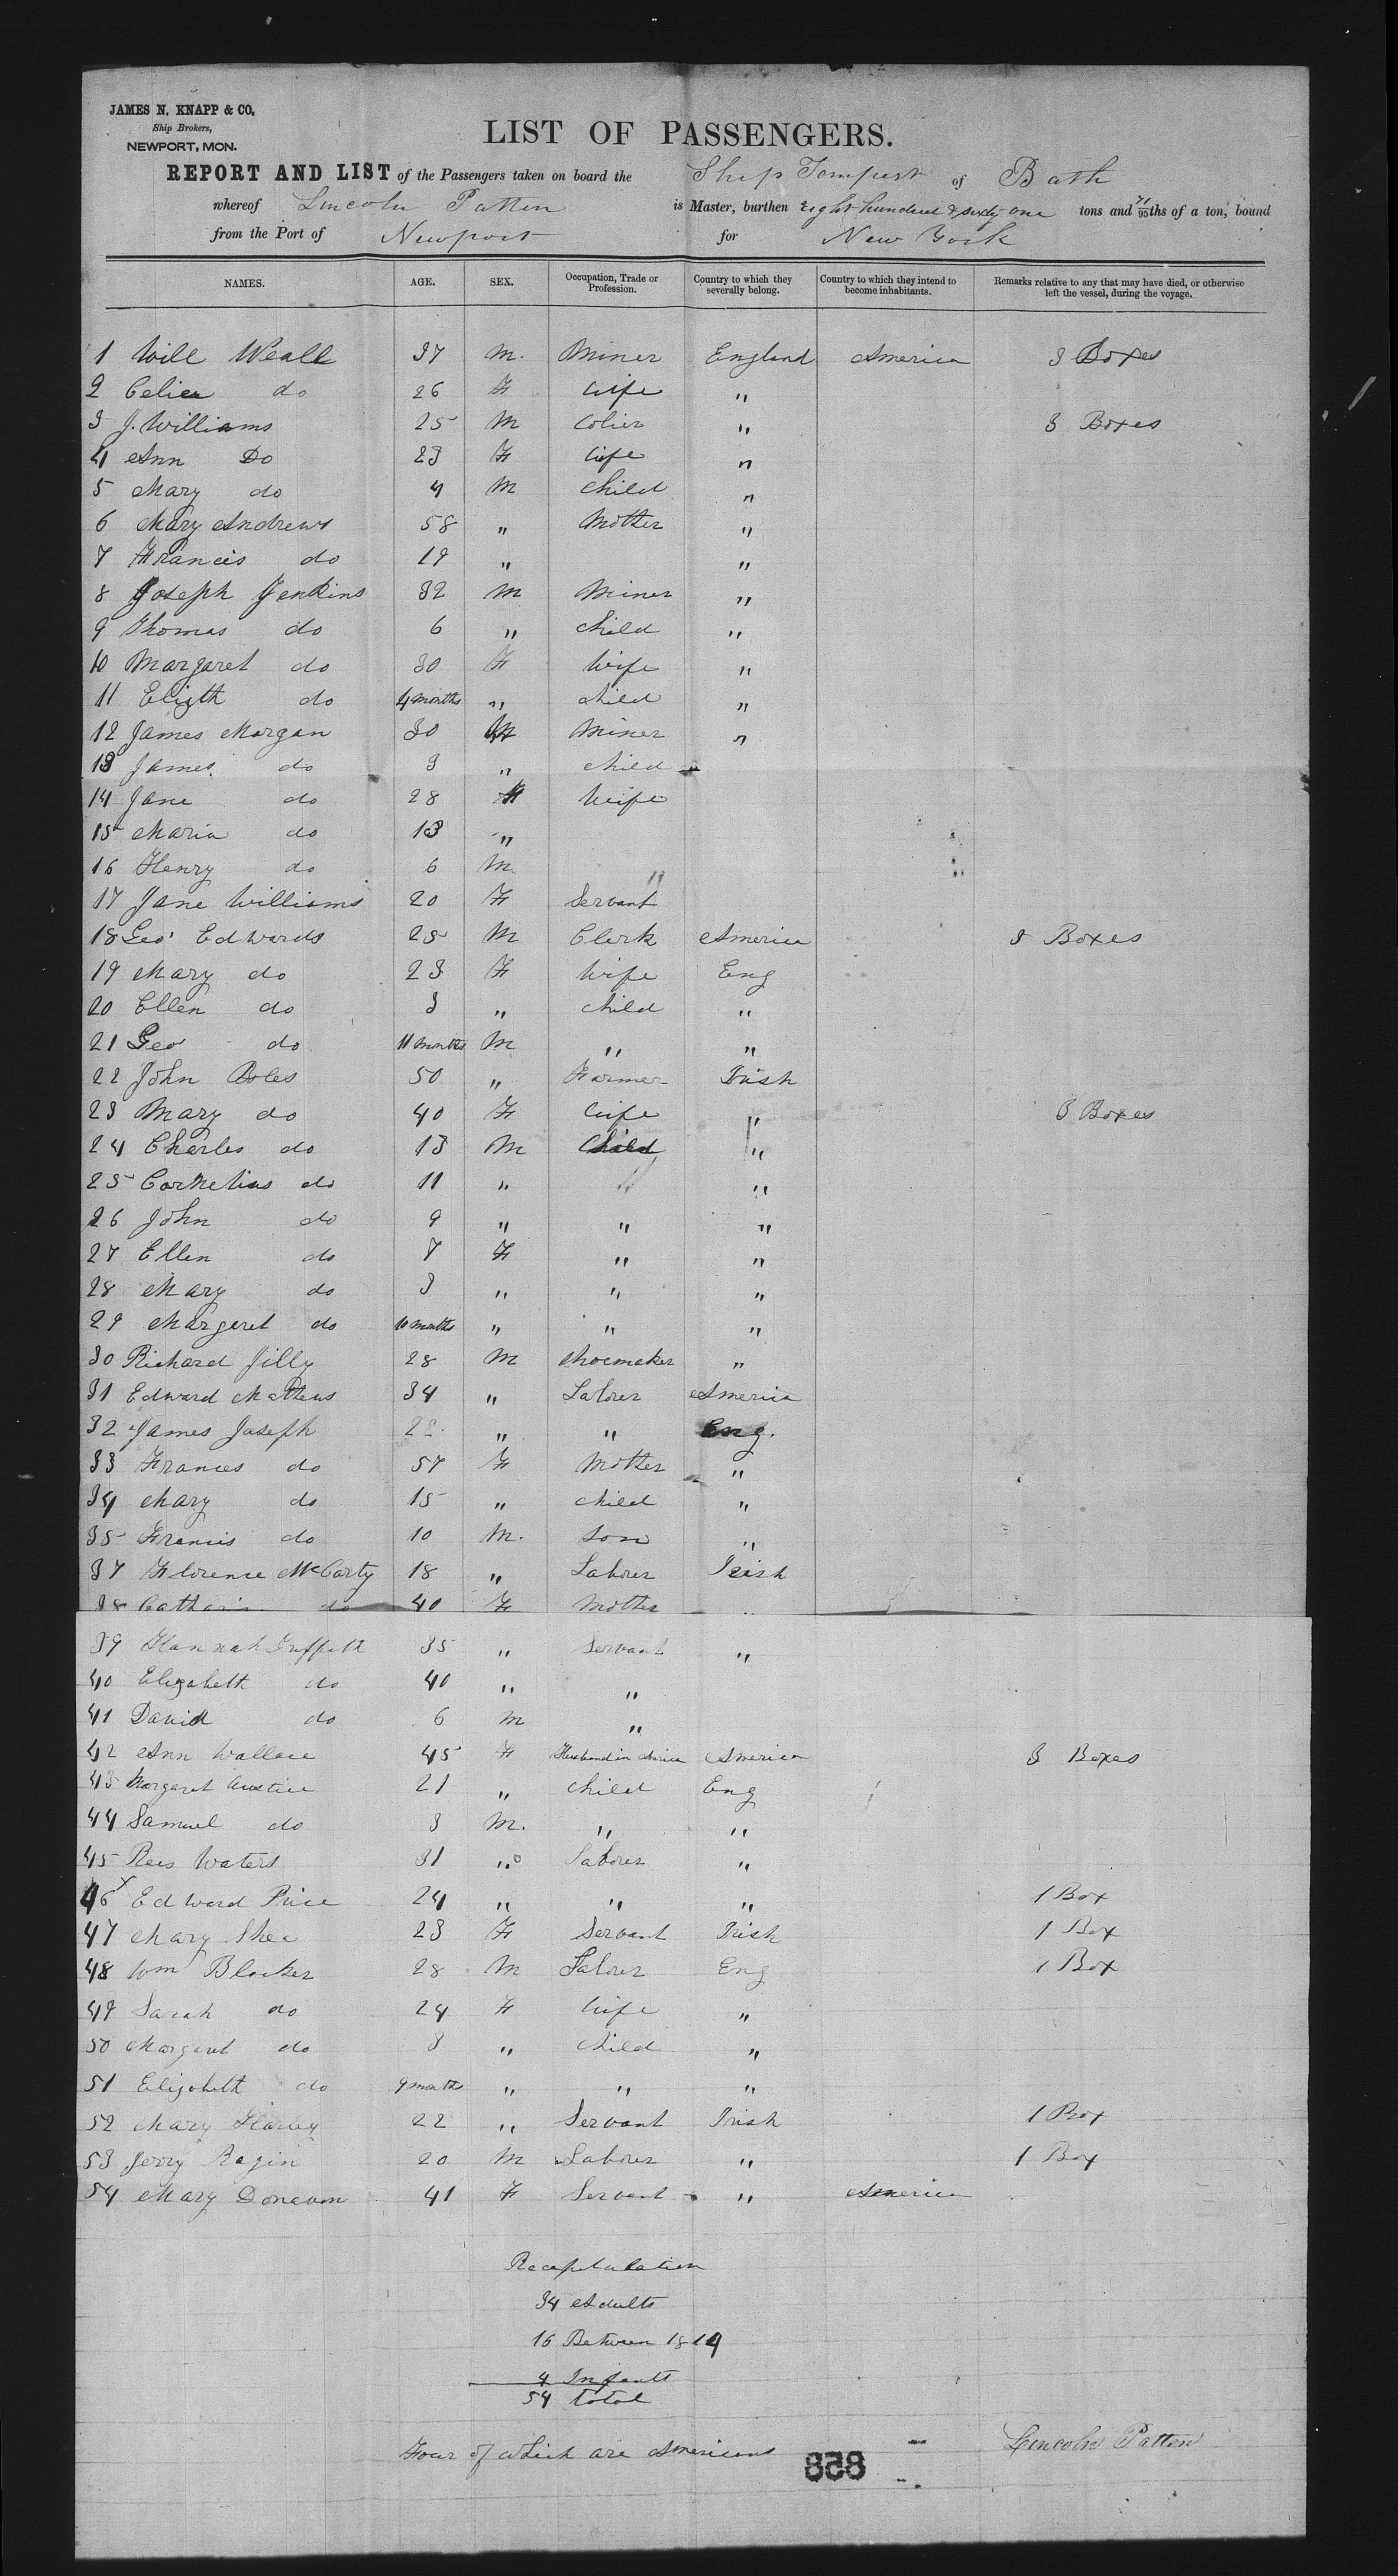 JAMES N. KNAPP & CO.
Ship Brokers,
NEWPORT, MON.
LIST OF PASSENGERS.
REPORT AND LIST of the Passengers taken on board the Ship Tempest of Bath
whereof Lincoln Patten is Master, burthen eight hundred & sixty one tons and 71/95ths of a ton, bound
from the Port of Newport for New York
NAMES. AGE. SEX. Occupation, Trade or Profession. Country to which they severally belong. Country to which they intend to become inhabitants. Remarks relative to any that may have died, or otherwise left the vessel, during the voyage.
1 Will Weall 37 M. Miner England America 3 Boxes
2 Celia do 26 F Wife "
3 J. Williams 25 M Colier " 3 Boxes
4 Ann Do 23 F Wife "
5 Mary do 4 M Child "
6 Mary Andrews 58 " Mother "
7 Francis do 19 " "
8 Joseph Jenkins 32 M Miner "
9 Thomas do 6 " Child "
10 Margaret do 30 F Wife "
11 Elizth do 4 months " child "
12 James Morgan 30 M Miner "
13 James do 3 " child "
14 Jane do 28 F Wife
15 Maria do 13 "
16 Henry do 6 M "
17 Jane Williams 20 F Servant
18 Geo Edwards 25 M Clerk America 3 Boxes
19 Mary do 23 F Wife Eng
20 Ellen do 3 " child "
21 Geo do 11 months M " "
22 John Boles 50 " Farmer Irish
23 Mary do 40 F Wife " 3 Boxes
24 Charles do 13 M Child "
25 Cornelius do 11 " " "
26 John do 9 " " "
27 Ellen do 7 F " "
28 Mary do 3 " " "
29 Margeret do 10 months " " "
30 Richard Jilly 28 M Shoemaker "
31 Edward Mathews 34 " Laborer America
32 James Joseph 22 " " Eng.
33 Frances do 57 F Mother "
34 Mary do 15 " child "
35 Francis do 10 M. Son "
37 Florence McCarty 18 " Laborer Irish
38 Catharin do 40 F Mother "
39 Hannah Griffith 35 " Servant "
40 Elizabeth do 40 " "
41 David do 6 M "
42 Ann Wallace 45 F Husband in America America 3 Boxes
43 Margaret Austice 21 " child Eng
44 Samuel do 3 M. " "
45 Rees Waters 31 " Laborer "
46 Edward Price 24 " " " 1 Box
47 Mary Shea 23 F Servant Irish 1 Box
48 Wm Blocker 28 M Laborer Eng 1 Box
49 Sarah do 24 F Wife "
50 Margaret do 3 " child "
51 Elizabeth do 9 months " " "
52 Mary Harley 22 " Servant Irish 1 Box
53 Jerry Ragin 20 M Laborer " 1 Box
54 Mary Donavan 41 F Servant " America
Recapitulation
34 Adults
16 Between 1 & 14
4 Infants
54 total
Four of which are Americans
Lincoln Patten
858